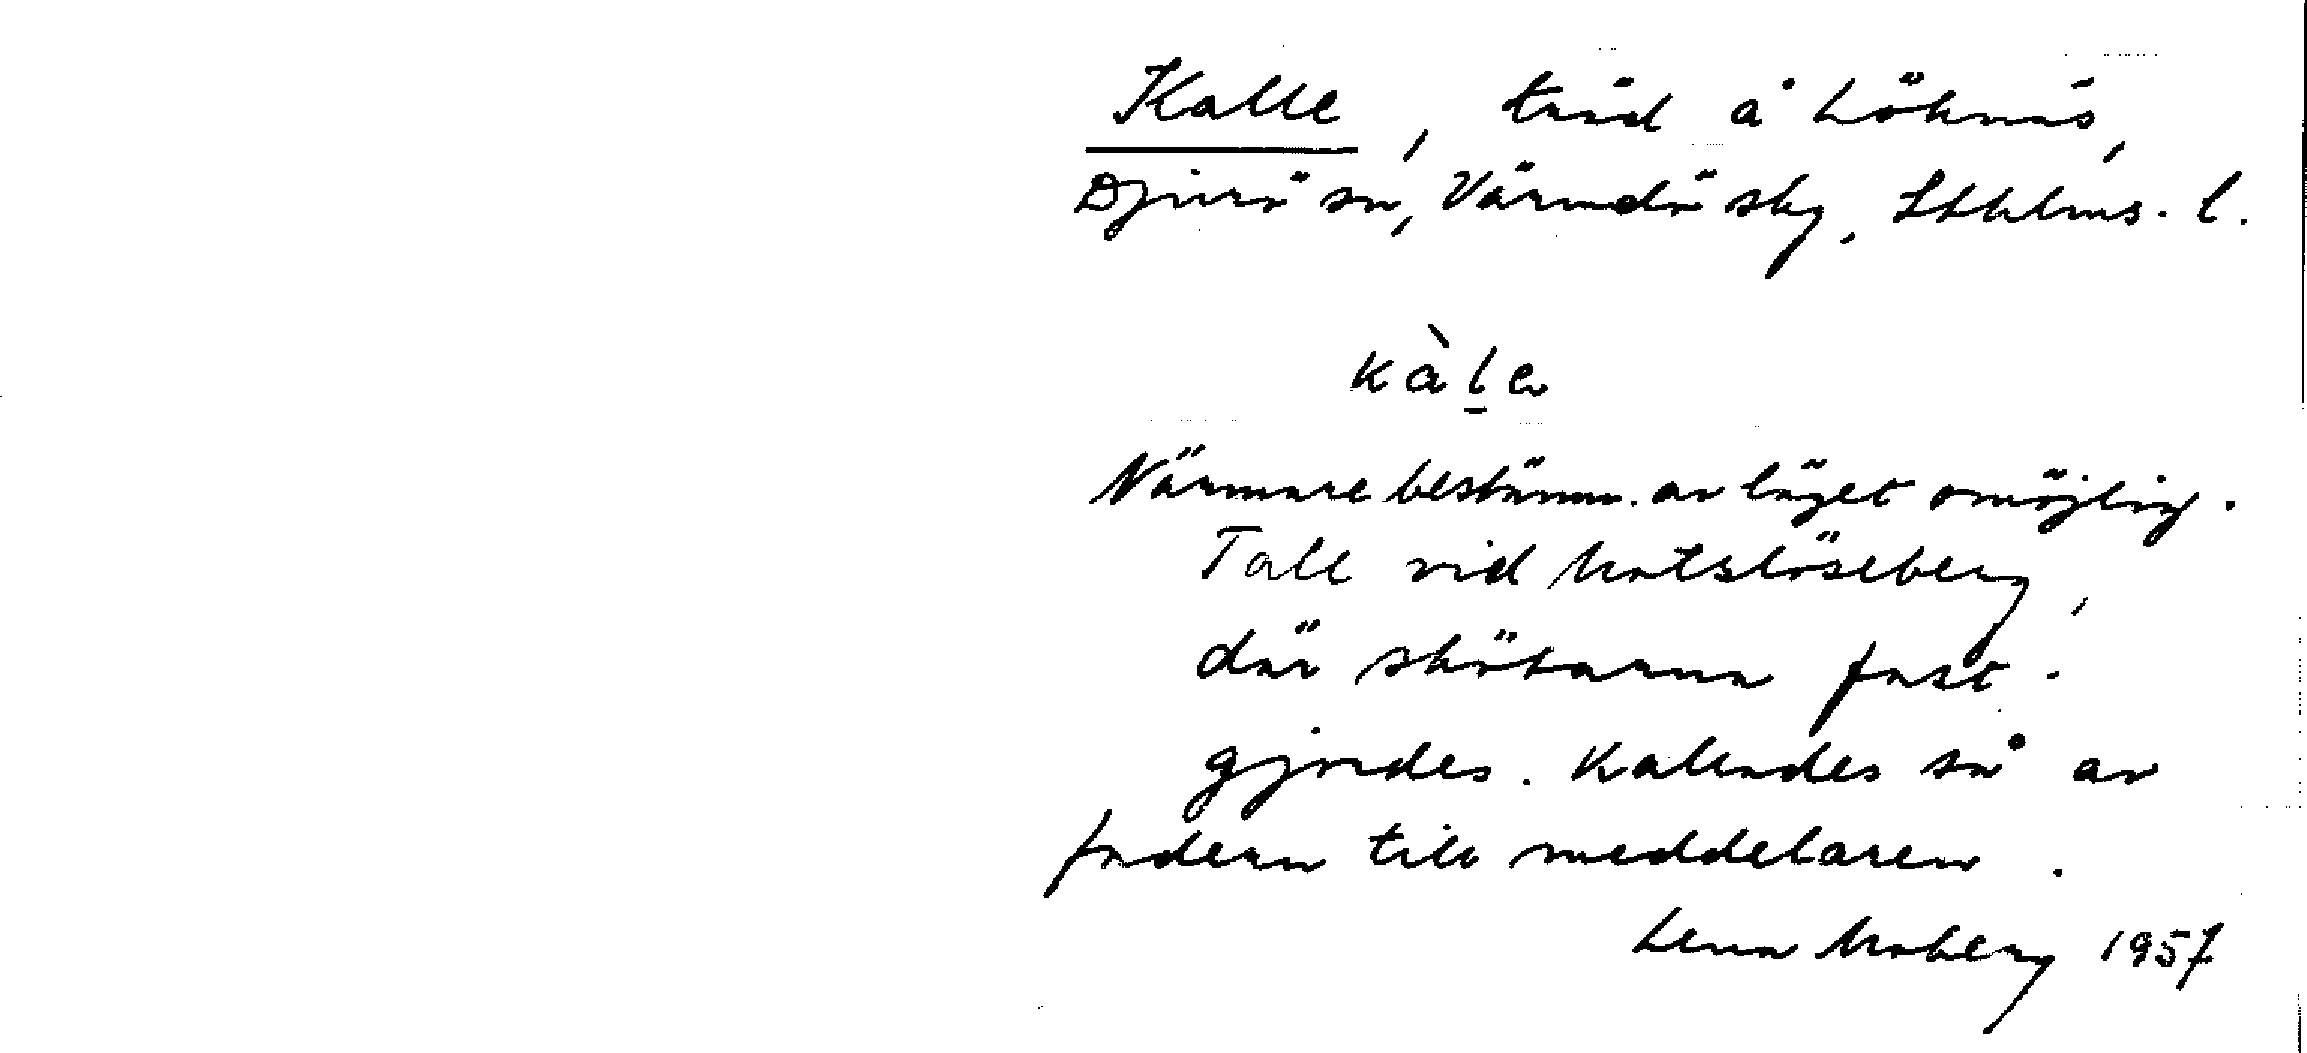 Kalle, träd å Löknäs,
Djurö sn, Värmdö skg, Sthlms. l.
kàl̠e
Närmare bestämn. av läget omöjlig.
Tall vid Matslöseberg,
där skötarna fast-
gjordes. Kallades så av
fadern till meddelaren.
Lena Moberg 1957